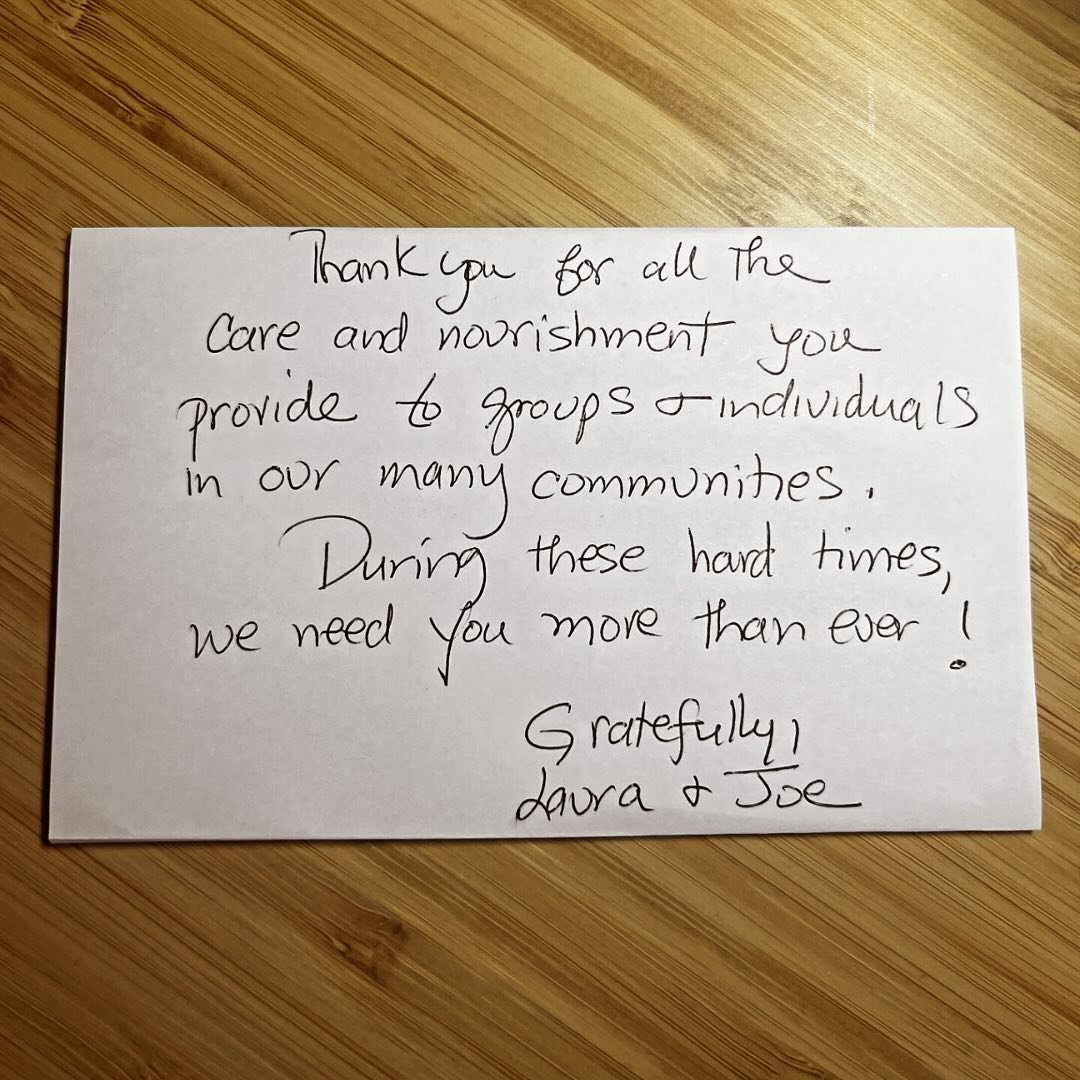 Thank you for all the
Care and nourishment you
provide to groups & individuals
in our many communities.
During these hard times,
we need you more than ever!
Gratefully,
Laura & Joe